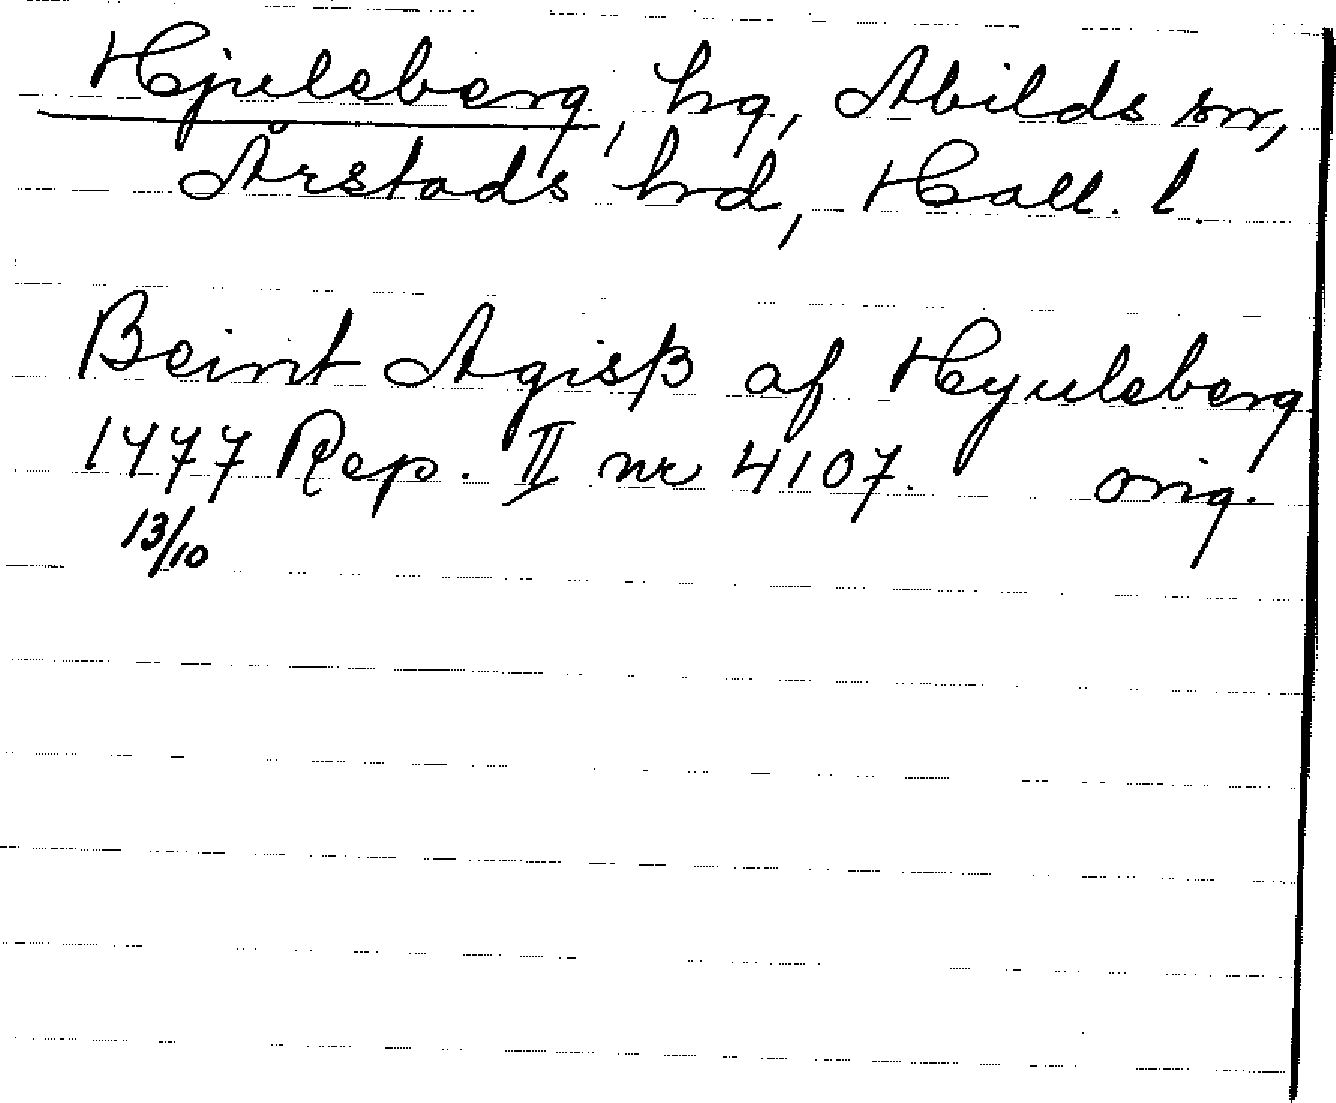 Hjuleberg, hg, Abilds sn,
Årstads hd, Hall. l.
Beint Agisß af Hyuleberg
1477 Rep. II nr 4107. orig.
13/10